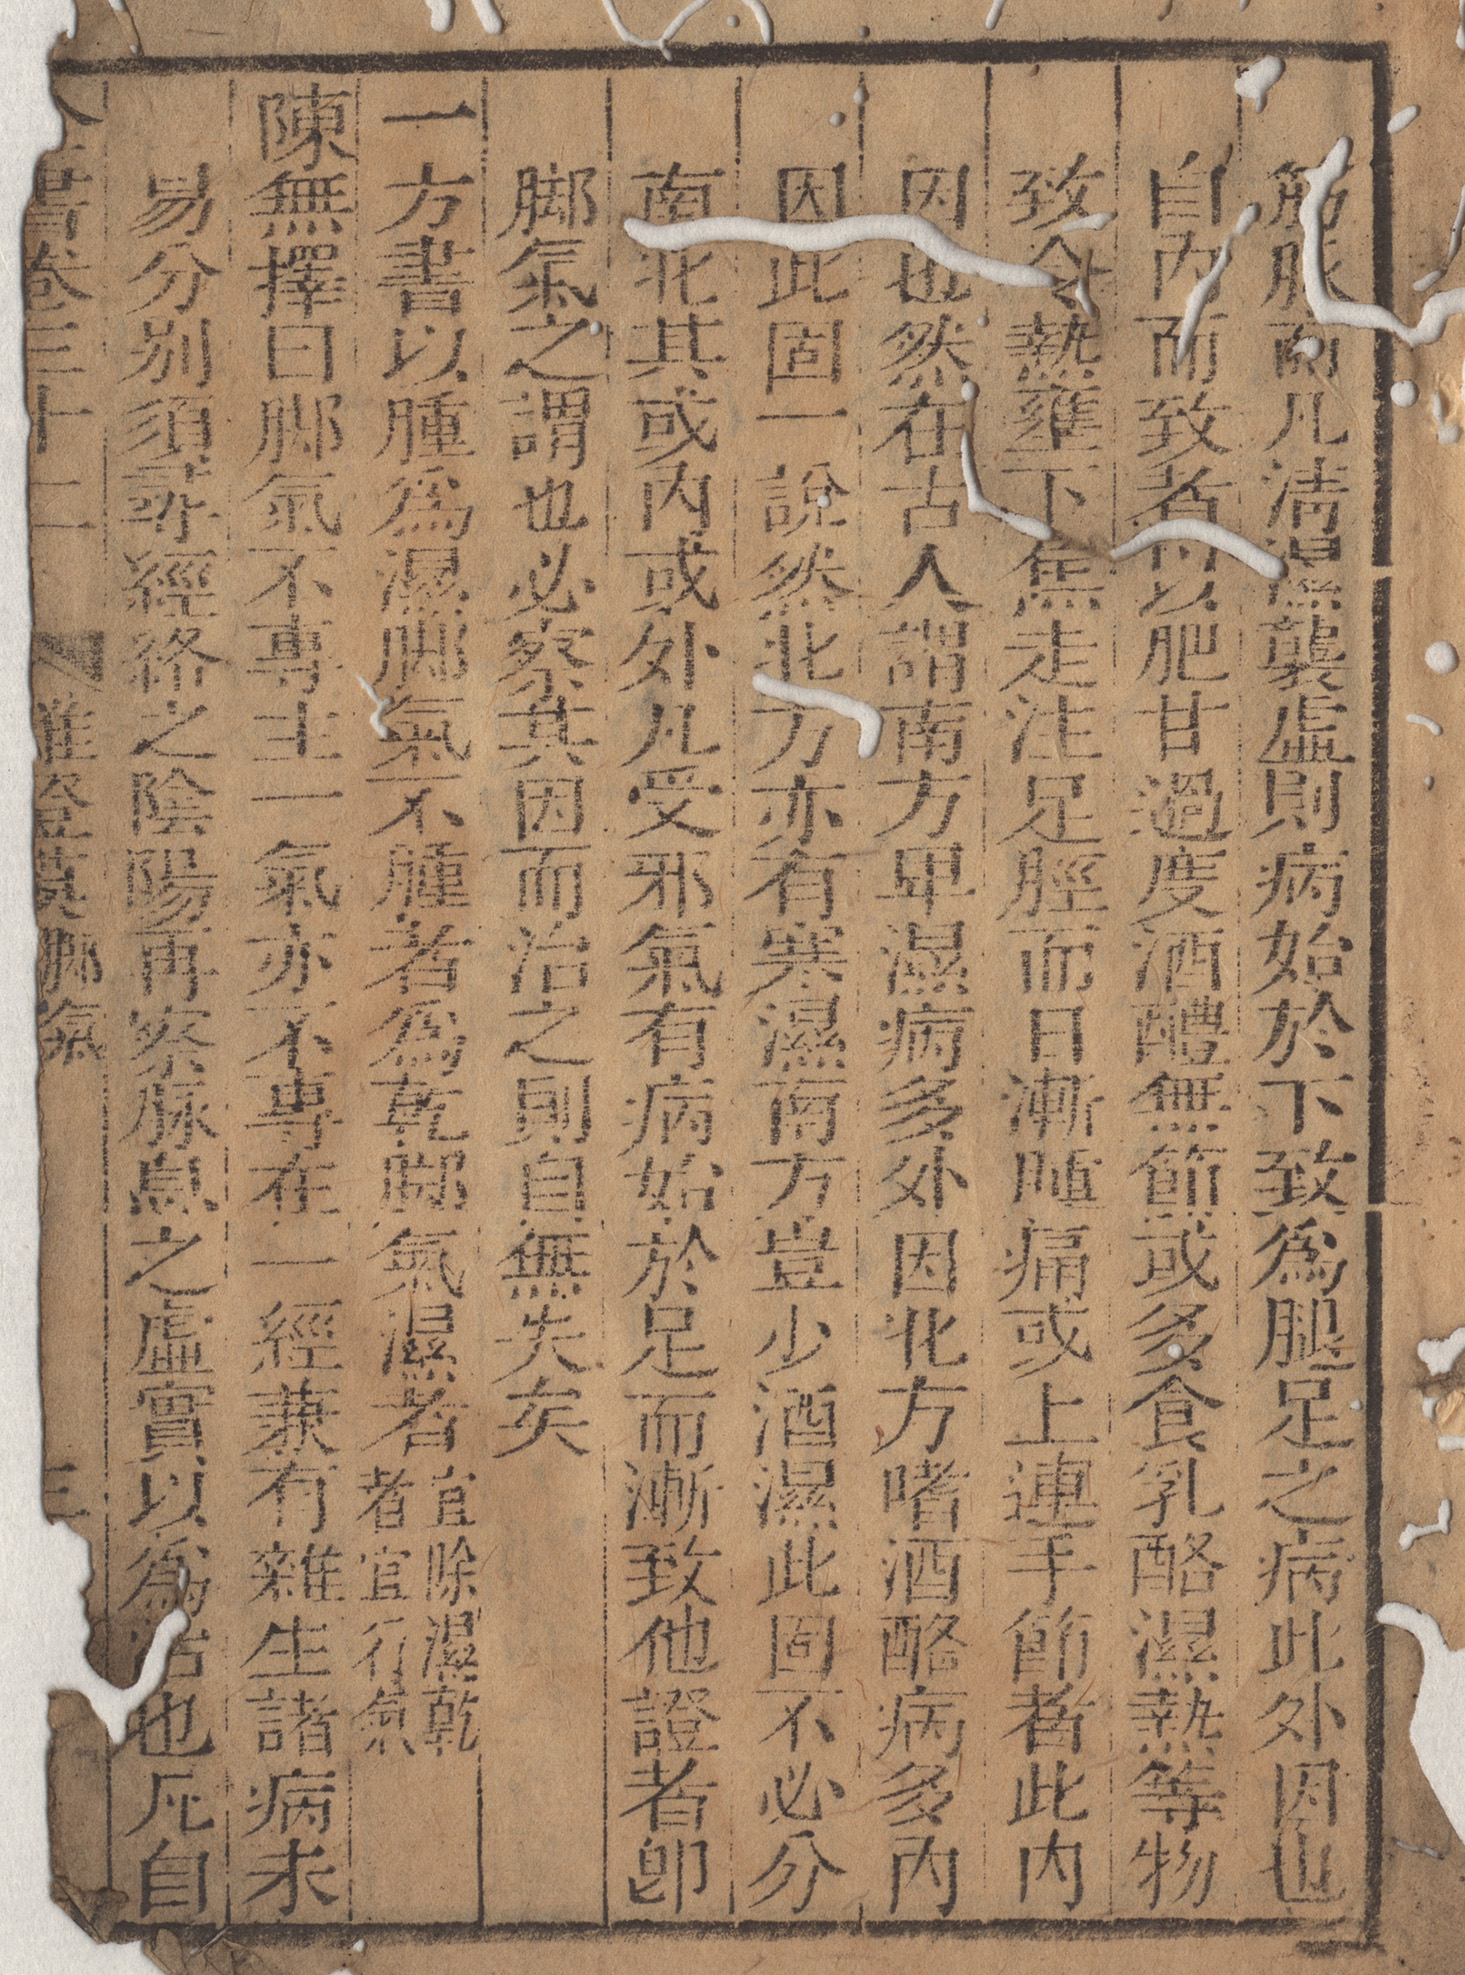 筋脉而凡淸濕襲虛則病始於下致爲腿足之病此外因也
自內而致者以肥甘過度酒醴無節或多食乳酪濕熱等物
致令熱壅下焦走注足脛而日漸腫痛或上連手節者此內
因也然在古人謂南方卑濕病多外因北方嗜酒酪病多內
因此固一說然北方亦有寒濕南方豈少酒濕此固不必分
南北其或內或外凡受邪氣有病始於足而漸致他證者卽
脚氣之謂也必察其因而治之則自無失矣
一方書以腫爲濕脚氣不腫者爲乾脚氣濕者宜除濕乾
者宜行氣
陳無擇曰脚氣不專主一氣亦不專在一經兼有雜生諸病未
易分別須尋經絡之陰陽再察脉息之虛實以爲治也凡自
書卷三十二 雜證謨 脚氣 三